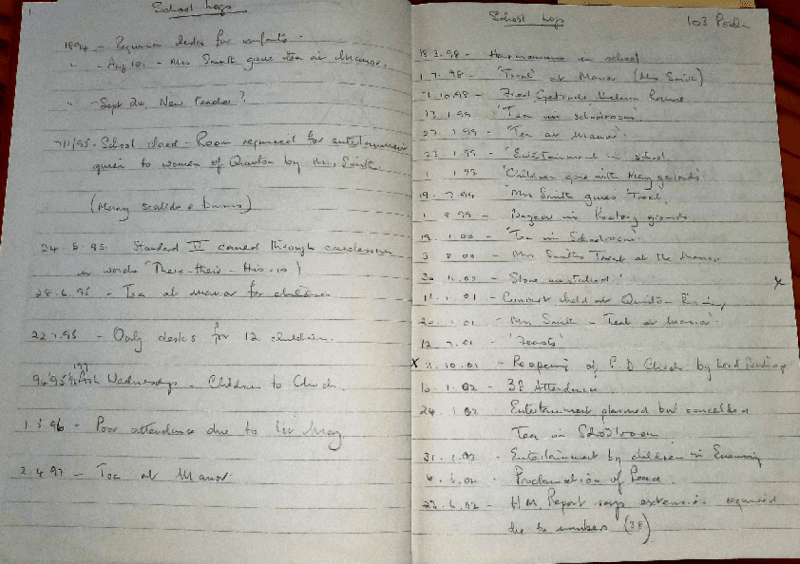 1.
School Logs
1894 - Requires desks for infants.
" - Aug 10. - Mrs Smith gave tea at Manor.
" - Sept 24. New Teacher?
7/11/95. School closed - Room required for entertainment
given to women of Quinton by Mrs Smith.
(Many scalds & burns)
24. 5. 95. Standard II carelessness
in words "There - their - His is)
28. 6. 95 - Tea at Manor for children
22.7.95 - Only desks for 12 children.
Wednesdays - Children to Church.
1. 5. 96 - Poor attendance due to 1st May
2. 4. 97 - Tea at Manor.
School Logs
103
18. 3. 98 - Harmonium in school
1. 7. 98 - 'Treat' at Manor (Mrs Smith)
10.98 - Fred, Gertrude,
13. 1. 99. 'Tea in schoolroom'.
27. 1. 99 - 'Tea at Manor'.
23. 1. 99 - 'Entertainment in school.
'Children gone with May garlands'
'Mrs Smith gives Treat.
1. 8.99 - Bazaar in Rectory grounds
19. 1. 00 - 'Tea in Schoolroom'
3. 8.00 - Mrs Smith's Treat at the Manor
x
11. 1. 01 - Concert held at Quinton
20. 01 - Mrs Smith - Tea at Manor'.
12. 7. 01 - 'Feasts'
x 10. 01 - Reopening of P D Church by Lord
1. 02 - 38 Attendance
24. 1. 02 Entertainment planned but cancelled
Tea in Schoolroom
31. 1. 02 - Entertainment by children in Evening
6. 6. 02 - Proclamation of Peace.
6. 02 - H.M. Report says extension required
due to numbers (38)